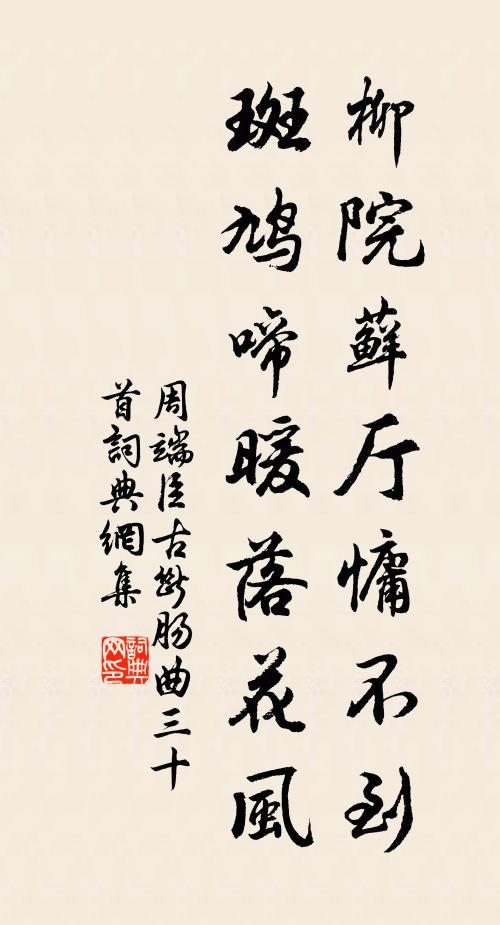 柳院蘚厅慵不到
斑鸠啼暖落花風
周端臣古断肠曲三十
首詞典網集
詞典
网印